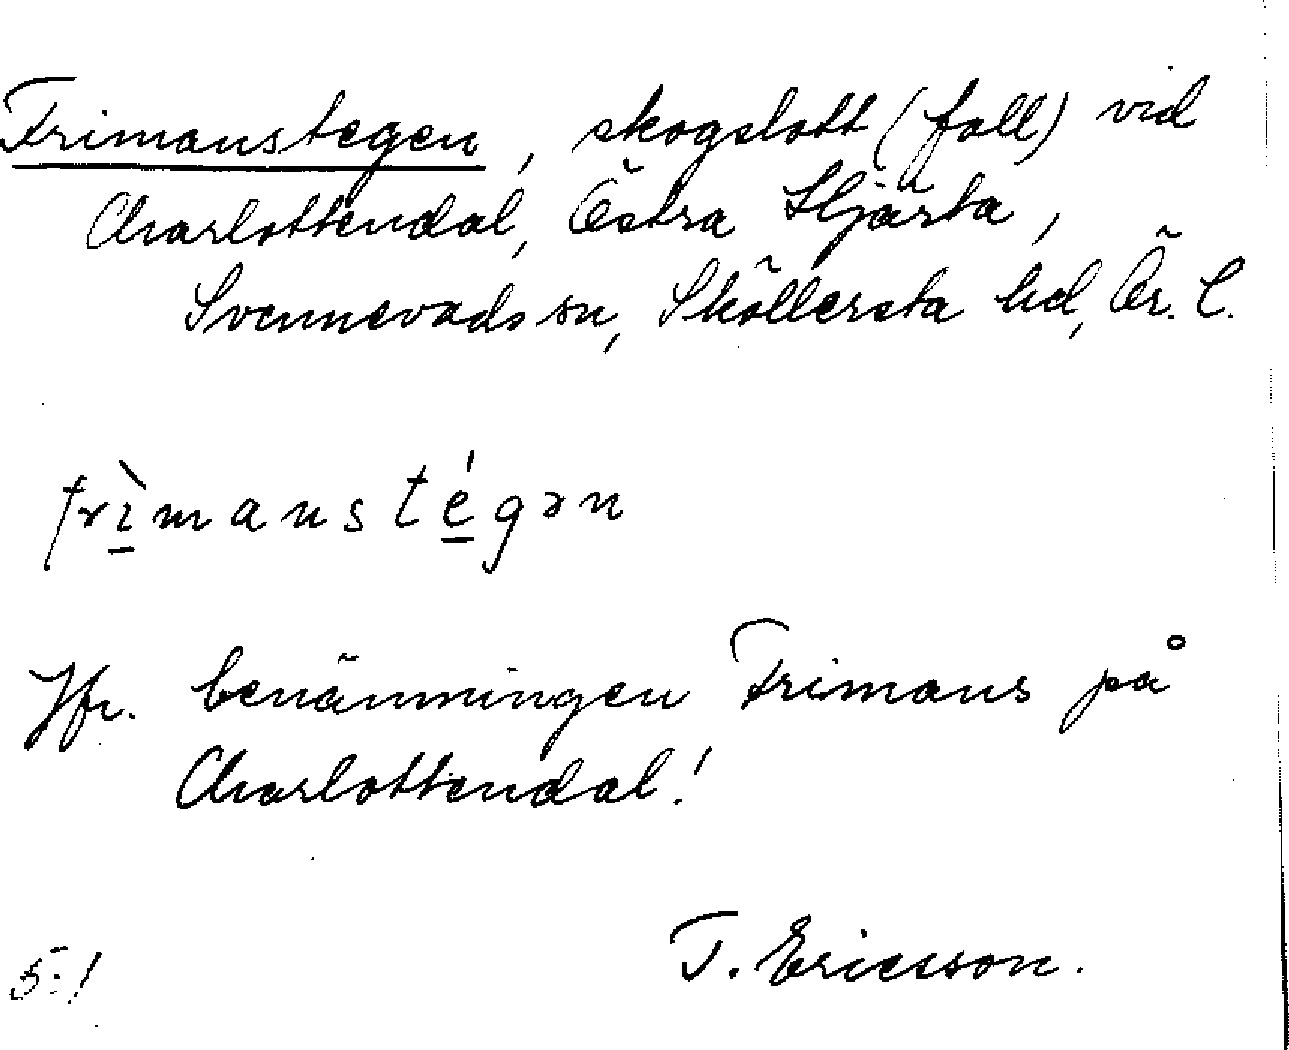 Frimanstegen, skogslott (fall) vid
Charlottendal, Östra Hjärta,
Svennevads sn, Sköllersta hd, Ör. l.
frìmanstégən
Jfr. benämningen Frimans på
Charlottendal!
T. Ericsson.
5:1